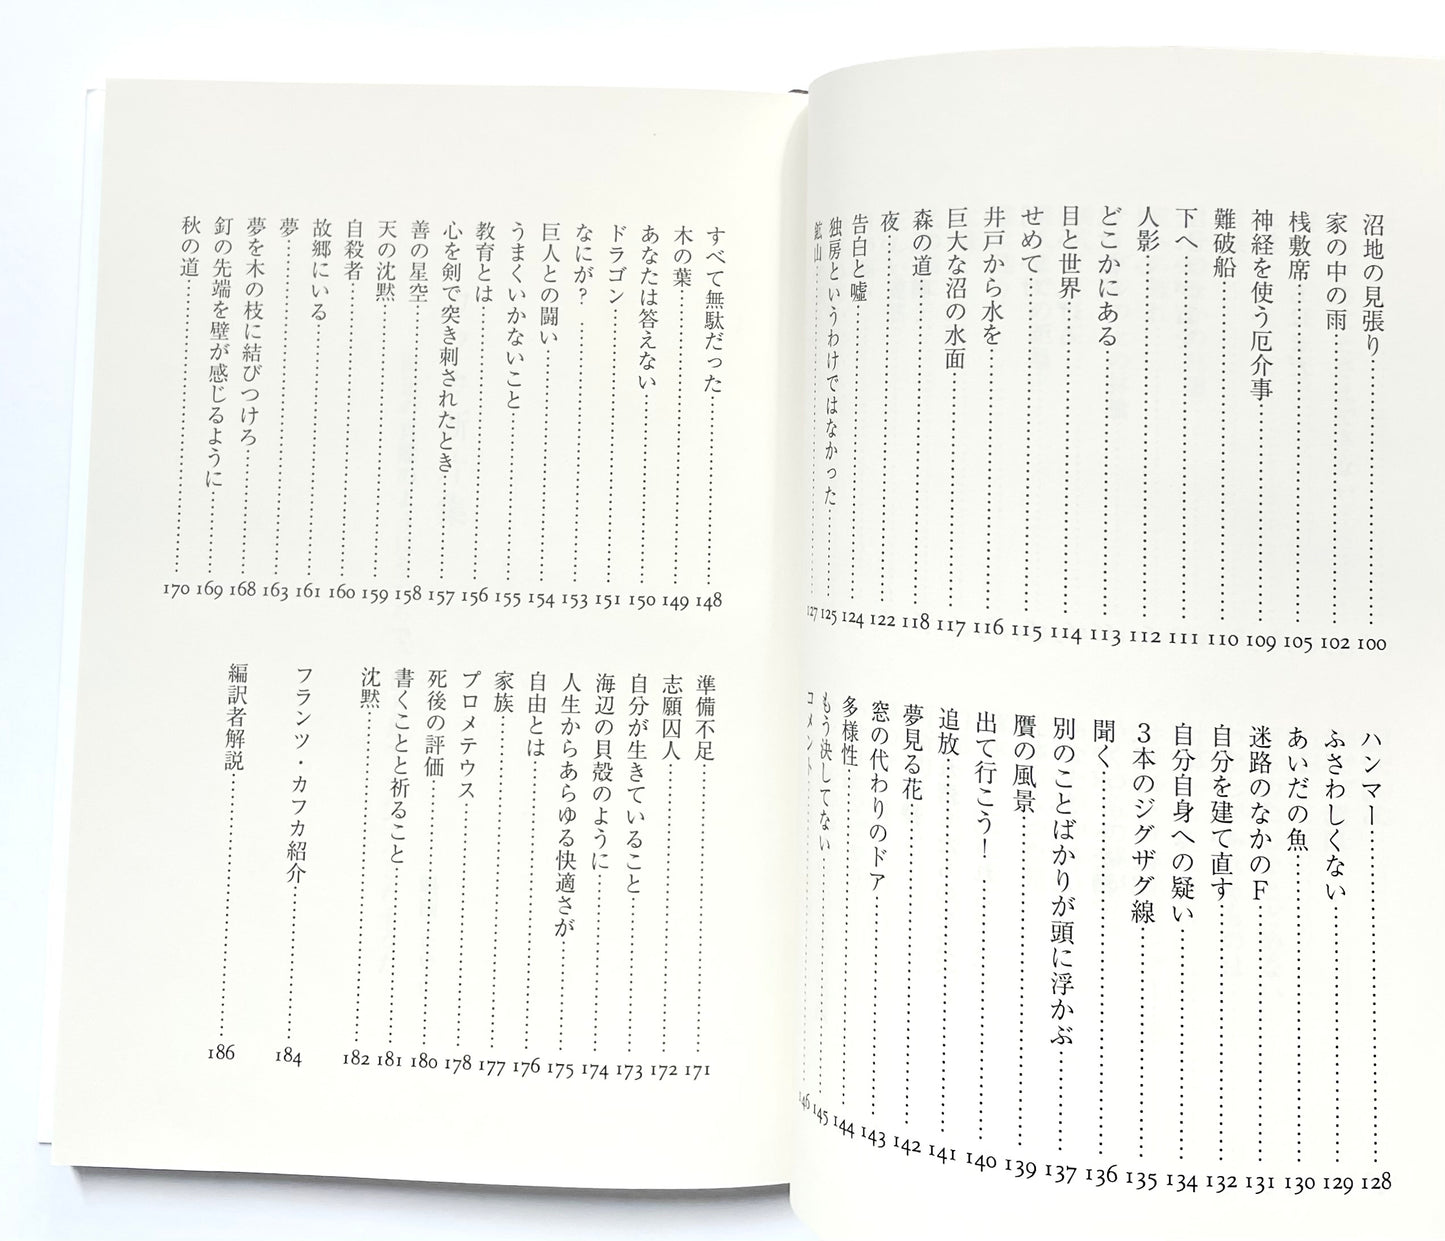 沼地の見張り……100
家の中の雨……102
桟敷席……105
神経を使う厄介事……109
難破船……110
下へ……111
人影……112
どこかにある……113
目と世界……114
せめて……115
井戸から水を……116
巨大な沼の水面……117
森の道……118
夜……122
告白と嘘……124
独房というわけではなかった……125
鉱山……127
ハンマー……128
ふさわしくない……129
あいだの魚……130
迷路のなかのF……131
自分を建て直す……132
自分自身への疑い……134
3本のジグザグ線……135
聞く……136
別のことばかりが頭に浮かぶ……137
贋の風景……139
出て行こう！……140
追放……141
夢見る花……142
窓の代わりのドア……143
多様性……144
もう決してない……145
コメント……146
すべて無駄だった……148
木の葉……149
あなたは答えない……150
ドラゴン……151
なにが？……153
巨人との闘い……154
うまくいかないこと……155
教育とは……156
心を剣で突き刺されたとき……157
善の星空……158
天の沈黙……159
自殺者……160
故郷にいる……161
夢……163
夢を木の枝に結びつけろ……168
釘の先端を壁が感じるように……169
秋の道……170
準備不足……171
志願囚人……172
自分が生きていること……173
海辺の貝殻のように……174
人生からあらゆる快適さが……175
自由とは……176
家族……177
プロメテウス……178
死後の評価……180
書くことと祈ること……181
沈黙……182
フランツ・カフカ紹介……184
編訳者解説……186